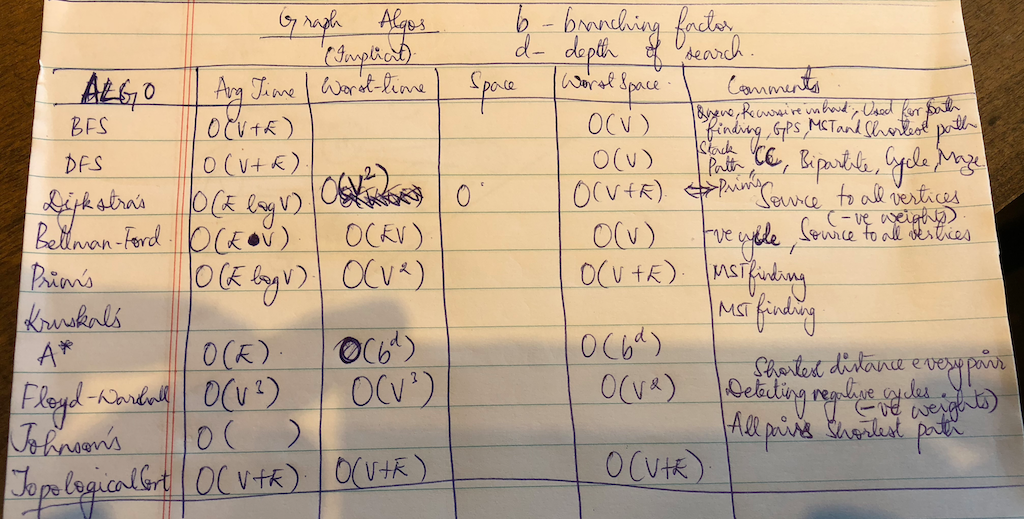 Graph Algos b - branching factor
(Implicit) d - depth of search.
ALGO Avg Time Worst-time Space Worst Space Comments
BFS O(V+E) O(V) Queue, Used for path
finding, GPS, MST and Shortest path
DFS O(V+E) O(V) Stack
Path, CC, Bipartite, Cycle, Maze
Dijkstra's O(E log V) O(V²) O O(V+E) ⟺ Prim's Source to all vertices
(-ve weights)
Bellman-Ford O(E·V) O(EV) O(V) -ve cycle, Source to all vertices
Prim's O(E log V) O(V²) O(V+E) MST finding
Kruskal's MST finding
A* O(E) O(b^d) O(b^d)
Shortest distance every pair
Floyd-Warshall O(V³) O(V³) O(V²) Detecting negative cycles
(-ve weights)
Johnson's O( ) All pairs Shortest path
Topological Sort O(V+E) O(V+E) O(V+E)